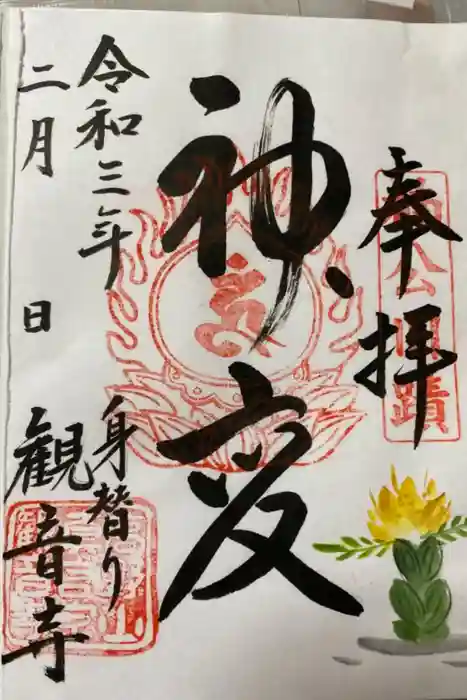 奉拝
神変
令和三年
二月 日
身替り
観音寺